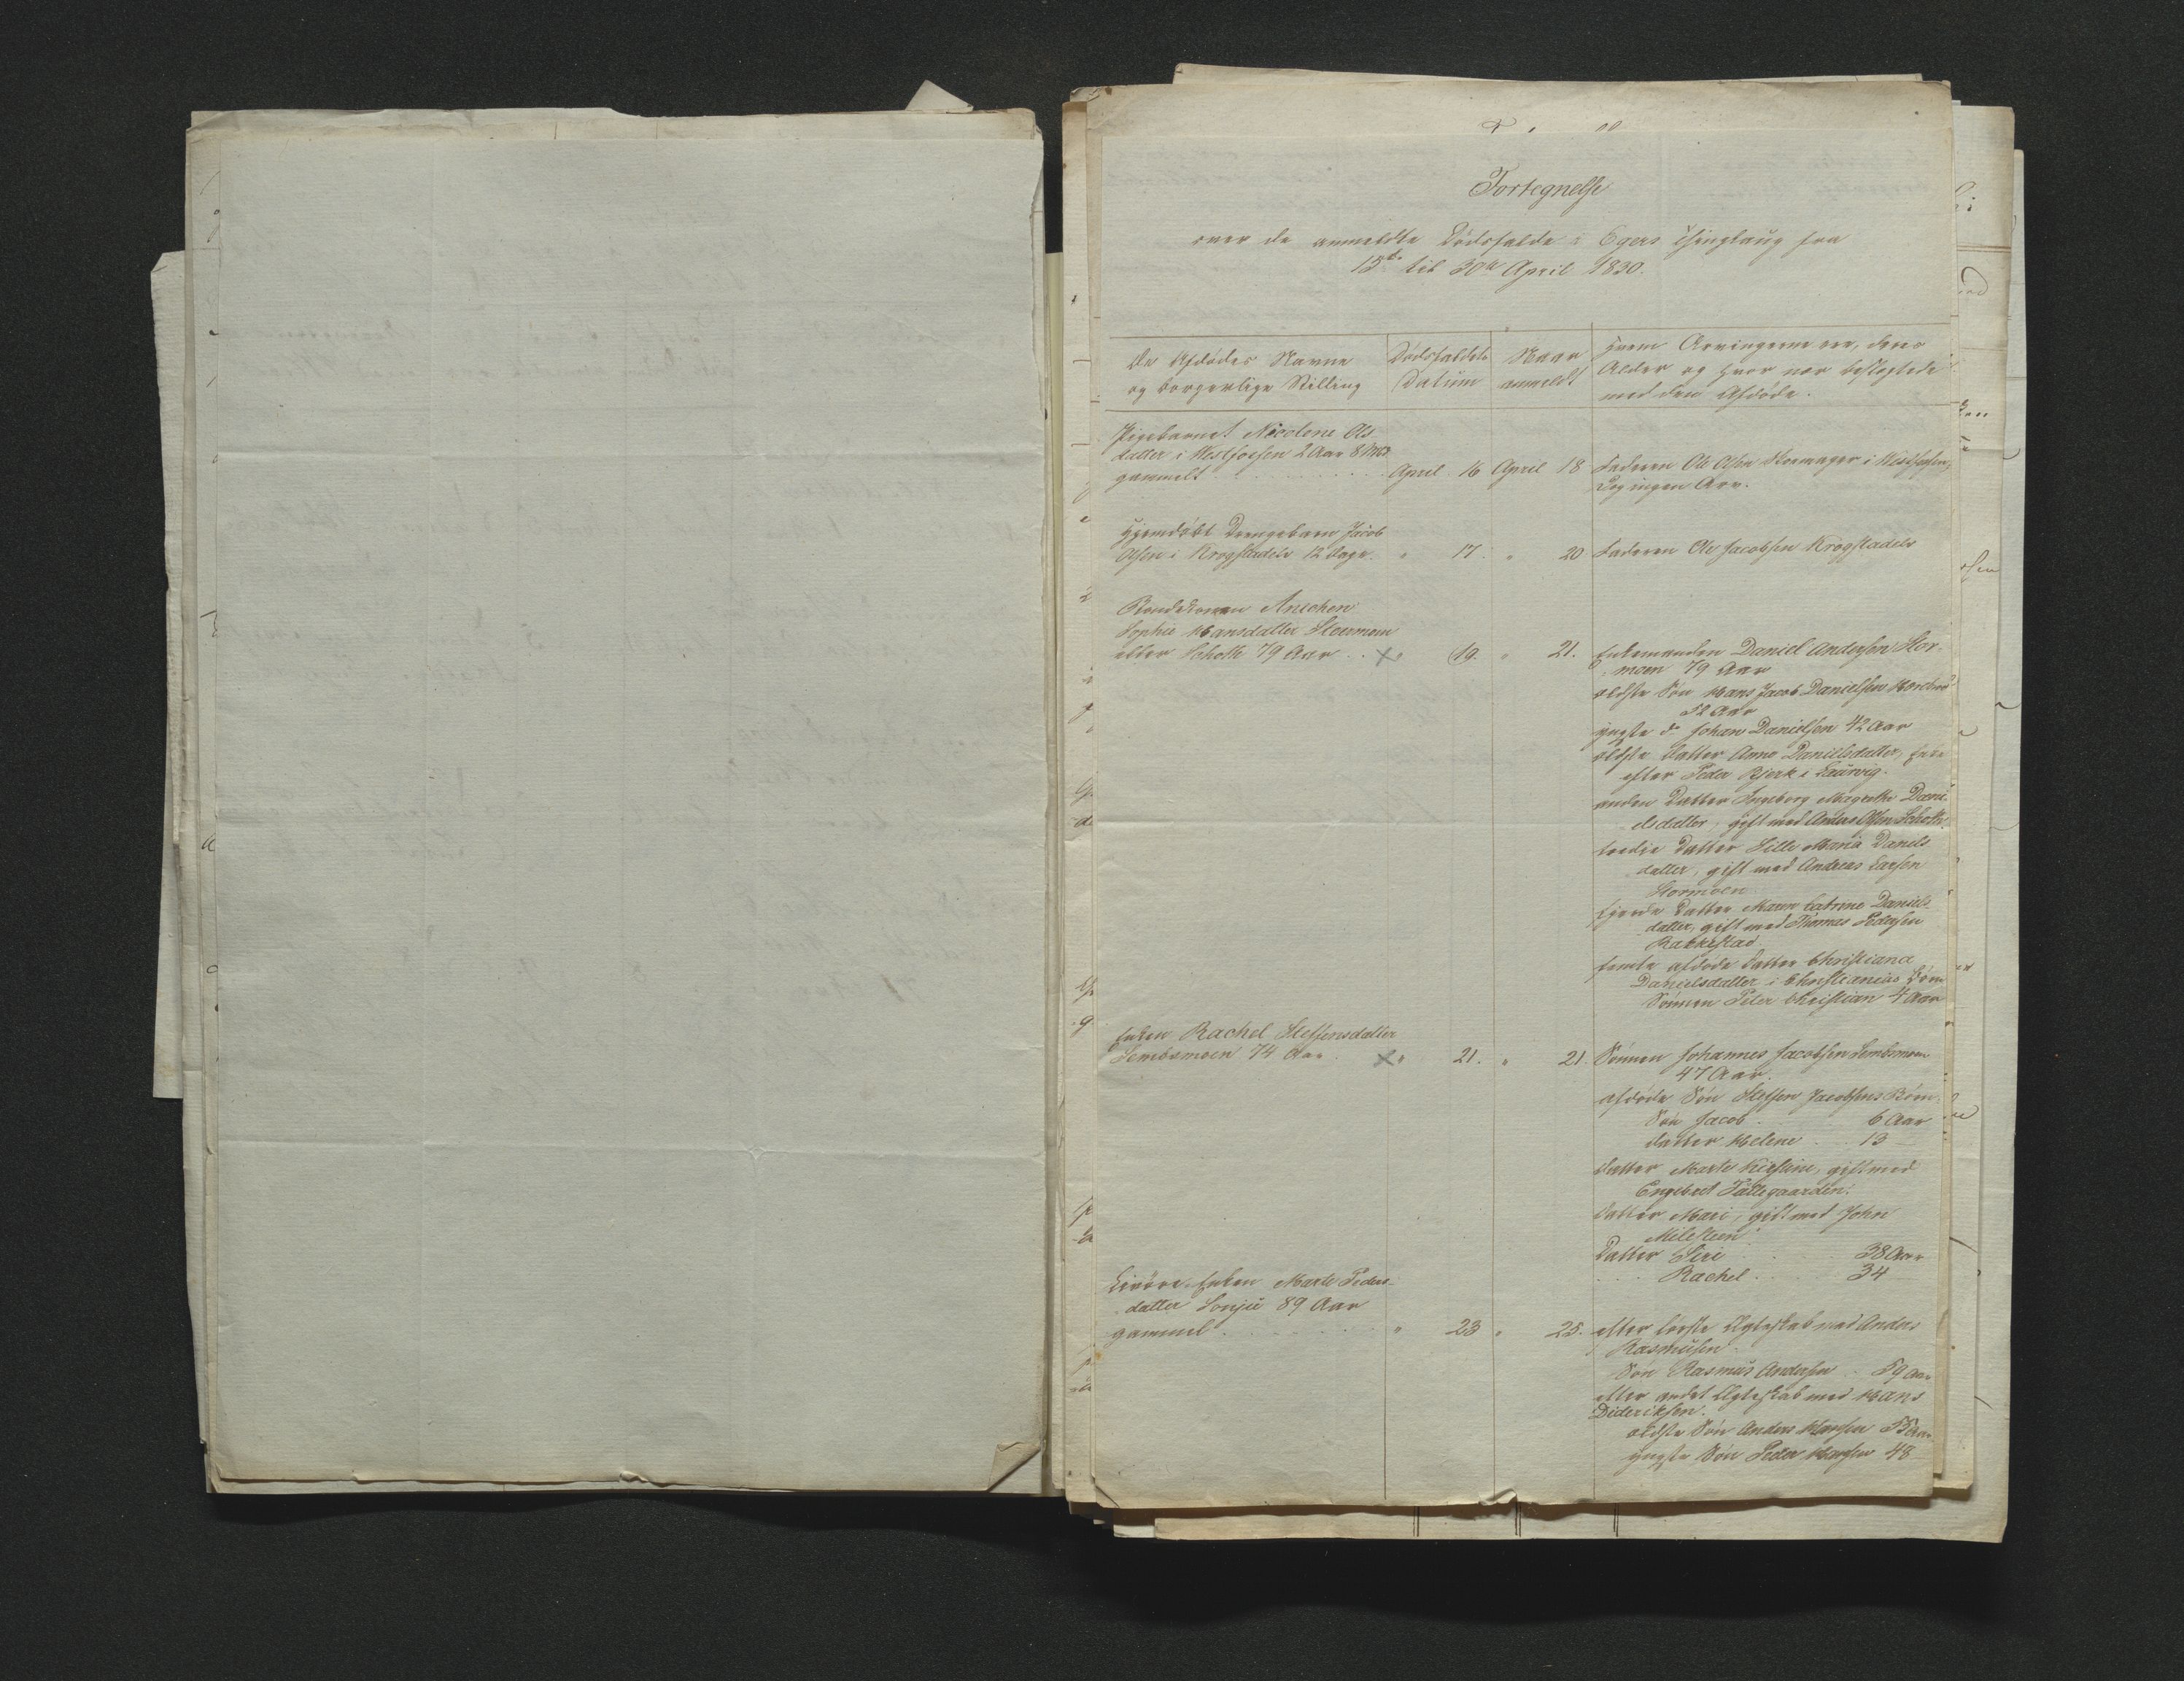 Fortegnelse
over de anmeldte Dødsfalde i Egers Thinglaug fra
15de til 30te April 1830.
De Afdødes Navne
og borgerlige Stilling
Dødsfaldets
Datum
Naar
anmeldt
Hvem Arvingerne ere, deres
Alder og hvor nær beslægtede
med den Afdøde.
Pigebarnet Nicoline Ols
datter i Westfossen 2 Aar 8 Mdr
gammelt
April 16
April 18
Faderen Ole Olsen Skomager i Westfossen,
Dog ingen Arv.
Hjemdøbt Drengebarn Jacob
Olsen i Krogstadelv 12 Dage.
" 17.
" 20
Faderen Ole Jacobsen Krogstadelv
Anichen
Sophie Hansdatter Stormoen
eller Schotte 79 Aar
19.
" 21.
Enkemanden Daniel Andersen Stor-
moen 79 Aar
ældste Søn Hans Jacob Danielsen
52 Aar
yngste do Johan Danielsen 42 Aar
ældste Datter Anne Danielsdatter, Enke
efter Peder Bjerk i Laurvig.
anden Datter Ingeborg Magrethe Dani-
elsdatter, gift med Anders Olsen Schotte
tredie Datter Sille Maria Daniels
datter, gift med Andreas Larsen
Stormoen
fjerde Datter Maren Catrine Daniels
datter, gift med Thomas Pedersen
Rakkestad
femte afdøde Datter Christiana
Danielsdatter i Christianias Børn
Sønnen Peter Christian 4 Aar
Enken Rachel Steffensdatter
Sembsmoen 74 Aar.
" 21.
" 21.
Sønnen Johannes Jacobsen Sembsmoen
47 Aar.
afdøde Søn Steffen Jacobsens Børn.
Søn Jacob 6 Aar
Datter Helene 13
Datter Marte Kirstine, gift med
Engebret Fallegaarden.
Datter Mari, gift med John
Milesteen
Datter Siri 38 Aar
Rachel 34
Enken Marte Peders-
datter Lonjü 89 Aar
gammel
" 23
" 25.
efter første Ægteskab med Anders
Rasmusen
Søn Rasmus Andersen 59 Aar
efter andet Ægteskab med Hans
Dideriksen.
ældste Søn Anders Hansen 55 Aar
yngste Søn Peder Hansen 48